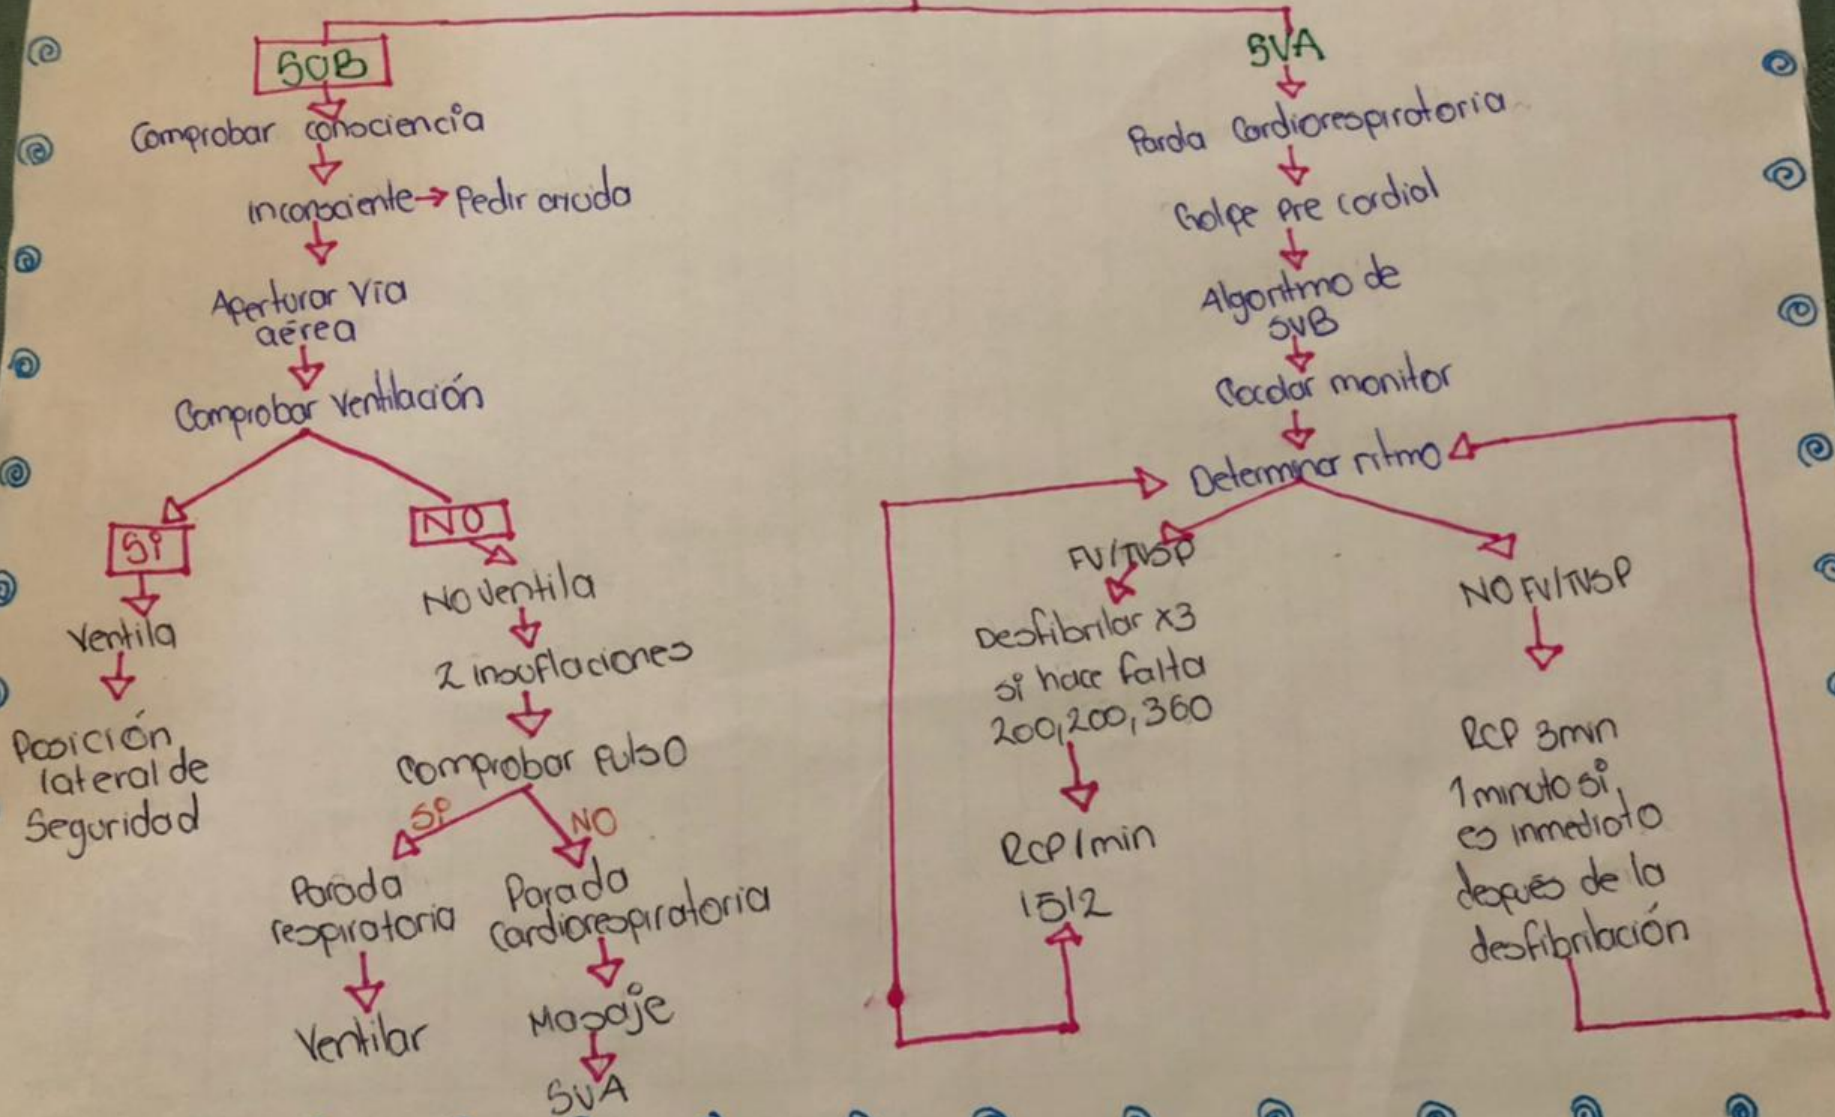 SVB
Comprobar consciencia
inconsciente → Pedir ayuda
Aperturar Vía
aérea
Comprobar Ventilación
Sí
NO
Ventila
Posición
lateral de
Seguridad
NO Ventila
2 insuflaciones
Comprobar Pulso
Sí
NO
Parada
respiratoria
Ventilar
Parada
cardiorespiratoria
Masaje
SVA
SVA
Parda Cardiorespiratoria
Golpe Pre Cordial
Algoritmo de
SVB
monitor
Determinar ritmo
FV/TVSP
Desfibrilar x3
si hace falta
200,200,360
RCP 1min
1512
NO FV/TVSP
RCP 3min
1 minuto si
es inmediato
después de la
desfibrilación